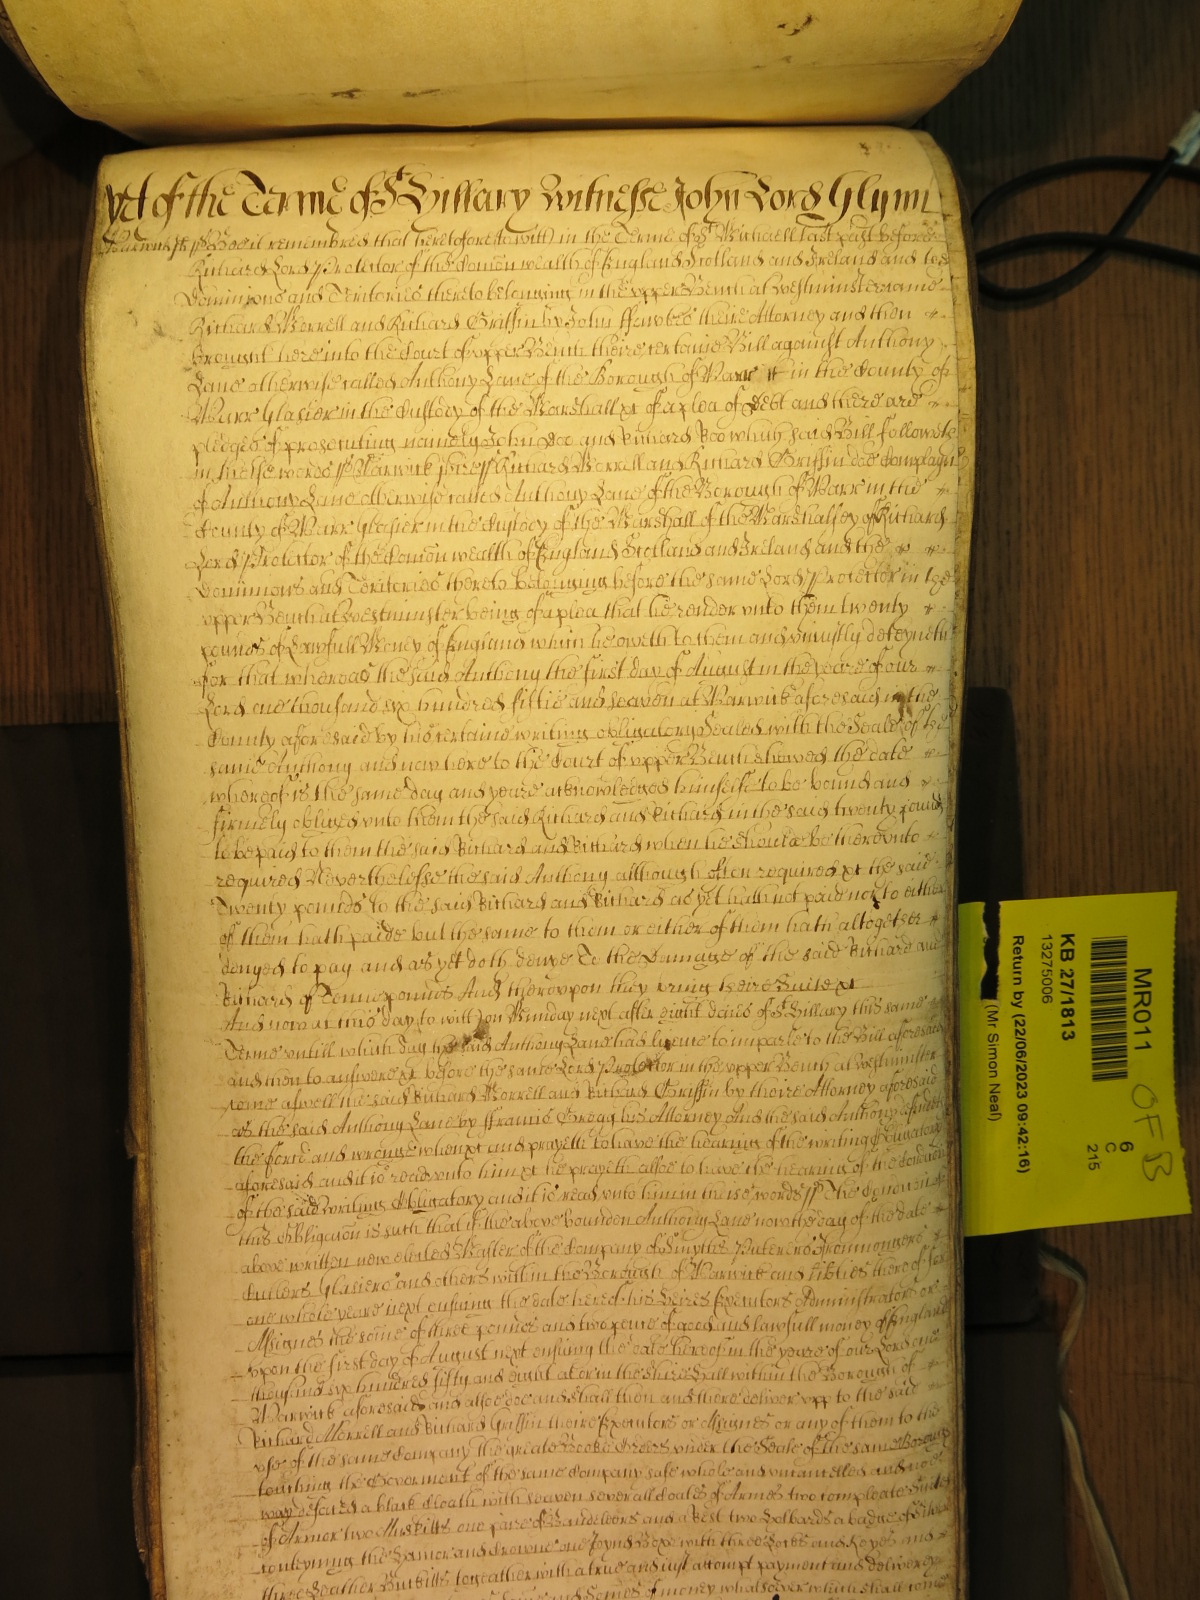 yet of the Terme of St Hillary Witnesse John Lord Glynn
Warwick ss Bee it remembred that heretofore to witt in the Terme of St Michaell last past before
Richard Lord Protector of the Comon wealth of England Scotland and Ireland and the
Dominions and Territories thereto belonging in the vpper Bench at Westminster came
Richard Merrell and Richard Griffin by John their Attorney and then
brought here into the Court of vpper Bench theire certaine Bill against Anthony
Lane otherwise called Anthony Lane of the Borough of Warr in the County of
Warr Glasier in the Custody of the Marshall &c of a plea of Debt and there are
pledges of prosecuting namely John Doe and Richard Roo which said Bill followeth
in theise words ss Warwick ss Richard Merrell and Richard Griffin doe Complayne
of Anthony Lane otherwise called Anthony Lane of the Borough of Warr in the
County of Warr Glasier in the Custody of the Marshall of the Marshalsey of Richard
Lord Protector of the Comon wealth of England Scotland and Ireland and the
Dominions and Territories thereto belonging before the same Lord Protector in the
vpper Bench at Westminster being of a plea that he render vnto them twenty
pounds of Lawfull Money of England which he oweth to them and vniustly deteyneth
For that whereas the said Anthony the first day of August in the yeare of our
Lord one thousand six hundred fiftie and seaven at Warwick aforesaid in the
County aforesaid by his certaine writing obligatory Sealed with the Seale of the
same Anthony and now here to the Court of vpper Bench shewed the date
whereof is the same day and yeare acknowledged himselfe to be bound and
firmely obliged vnto them the said Richard and Richard in the said twenty pounds
to be paid to them the said Richard and Richard when he should be therevnto
required Neverthelesse the said Anthony although often required &c the said
Twenty pounds to the said Richard and Richard as yet hath not paid nor to either
of them hath paide but the same to them or either of them hath altogether
denyed to pay and as yet doth denie To the Damage of the said Richard and
Richard of Tenne pounds And therevpon they bring theire Suite &c
And now at this day to witt on Munday next after eight daies of St Hillary this same
Terme vntill which day the said Anthony Lane had licence to imparle to the Bill aforesaid
and then to answere &c before the same Lord Protector in the vpper Bench at Westminster
come aswell the said Richard Merrell and Richard Griffin by theire Attorney aforesaid
as the said Anthony Lane by ffrancis Gregg his Attorney And the said Anthony defendeth
the force and wronge when &c and prayeth to have the hearing of the writing Obligatory
aforesaid and it is read vnto him &c he prayeth allsoe to have the hearing of the Condicon
of the said writing Obligatory and it is read vnto him in theise words ss The Condicon of
this Obligacon is such that if the above bounden Anthony Lane now the day of the date
above written new elected Master of the Company of Smythes Ironmongers
Cutlers Glasiers and others within the Borough of Warwick and libties thereof for
one whole yeare next ensuing the date hereof his Heires Executors Administrators or
Assignes the some of three pounds and two pence of good and lawfull money of England
vpon the first day of August next ensuing the date hereof in the yeare of our Lord one
thousand six hundred fifty and eight at or in the Shire Hall within the Borough of
Warwick aforesaid and allsoe doe and shall then and there deliver vpp to the said
Richard Merrell and Richard Griffin theire Executors or Assignes or any of them to the
vse of the same Company the greate Booke Orders vnder the Seale of the same Borough
touching the Goverment of the same Company safe whole and vncancelled and noe
way defaced a black Cloath with seaven severall Coates of Armes two compleate Suites
of Armor two Musketts one paire of Bandeleers and a Rest two Holbards a badge of Silver
conteyning the Hamor and Crowne one Joynd Boxe with three Locks and Keyes and
three Leather Bucketts togeather with a true and iust attempt payment and delivery
Somes of money whatsoever which shall come
MR011
OF B
6
C
215
KB 27/1813
13275006
Return by (22/06/2023 09:42:16)
(Mr Simon Neal)